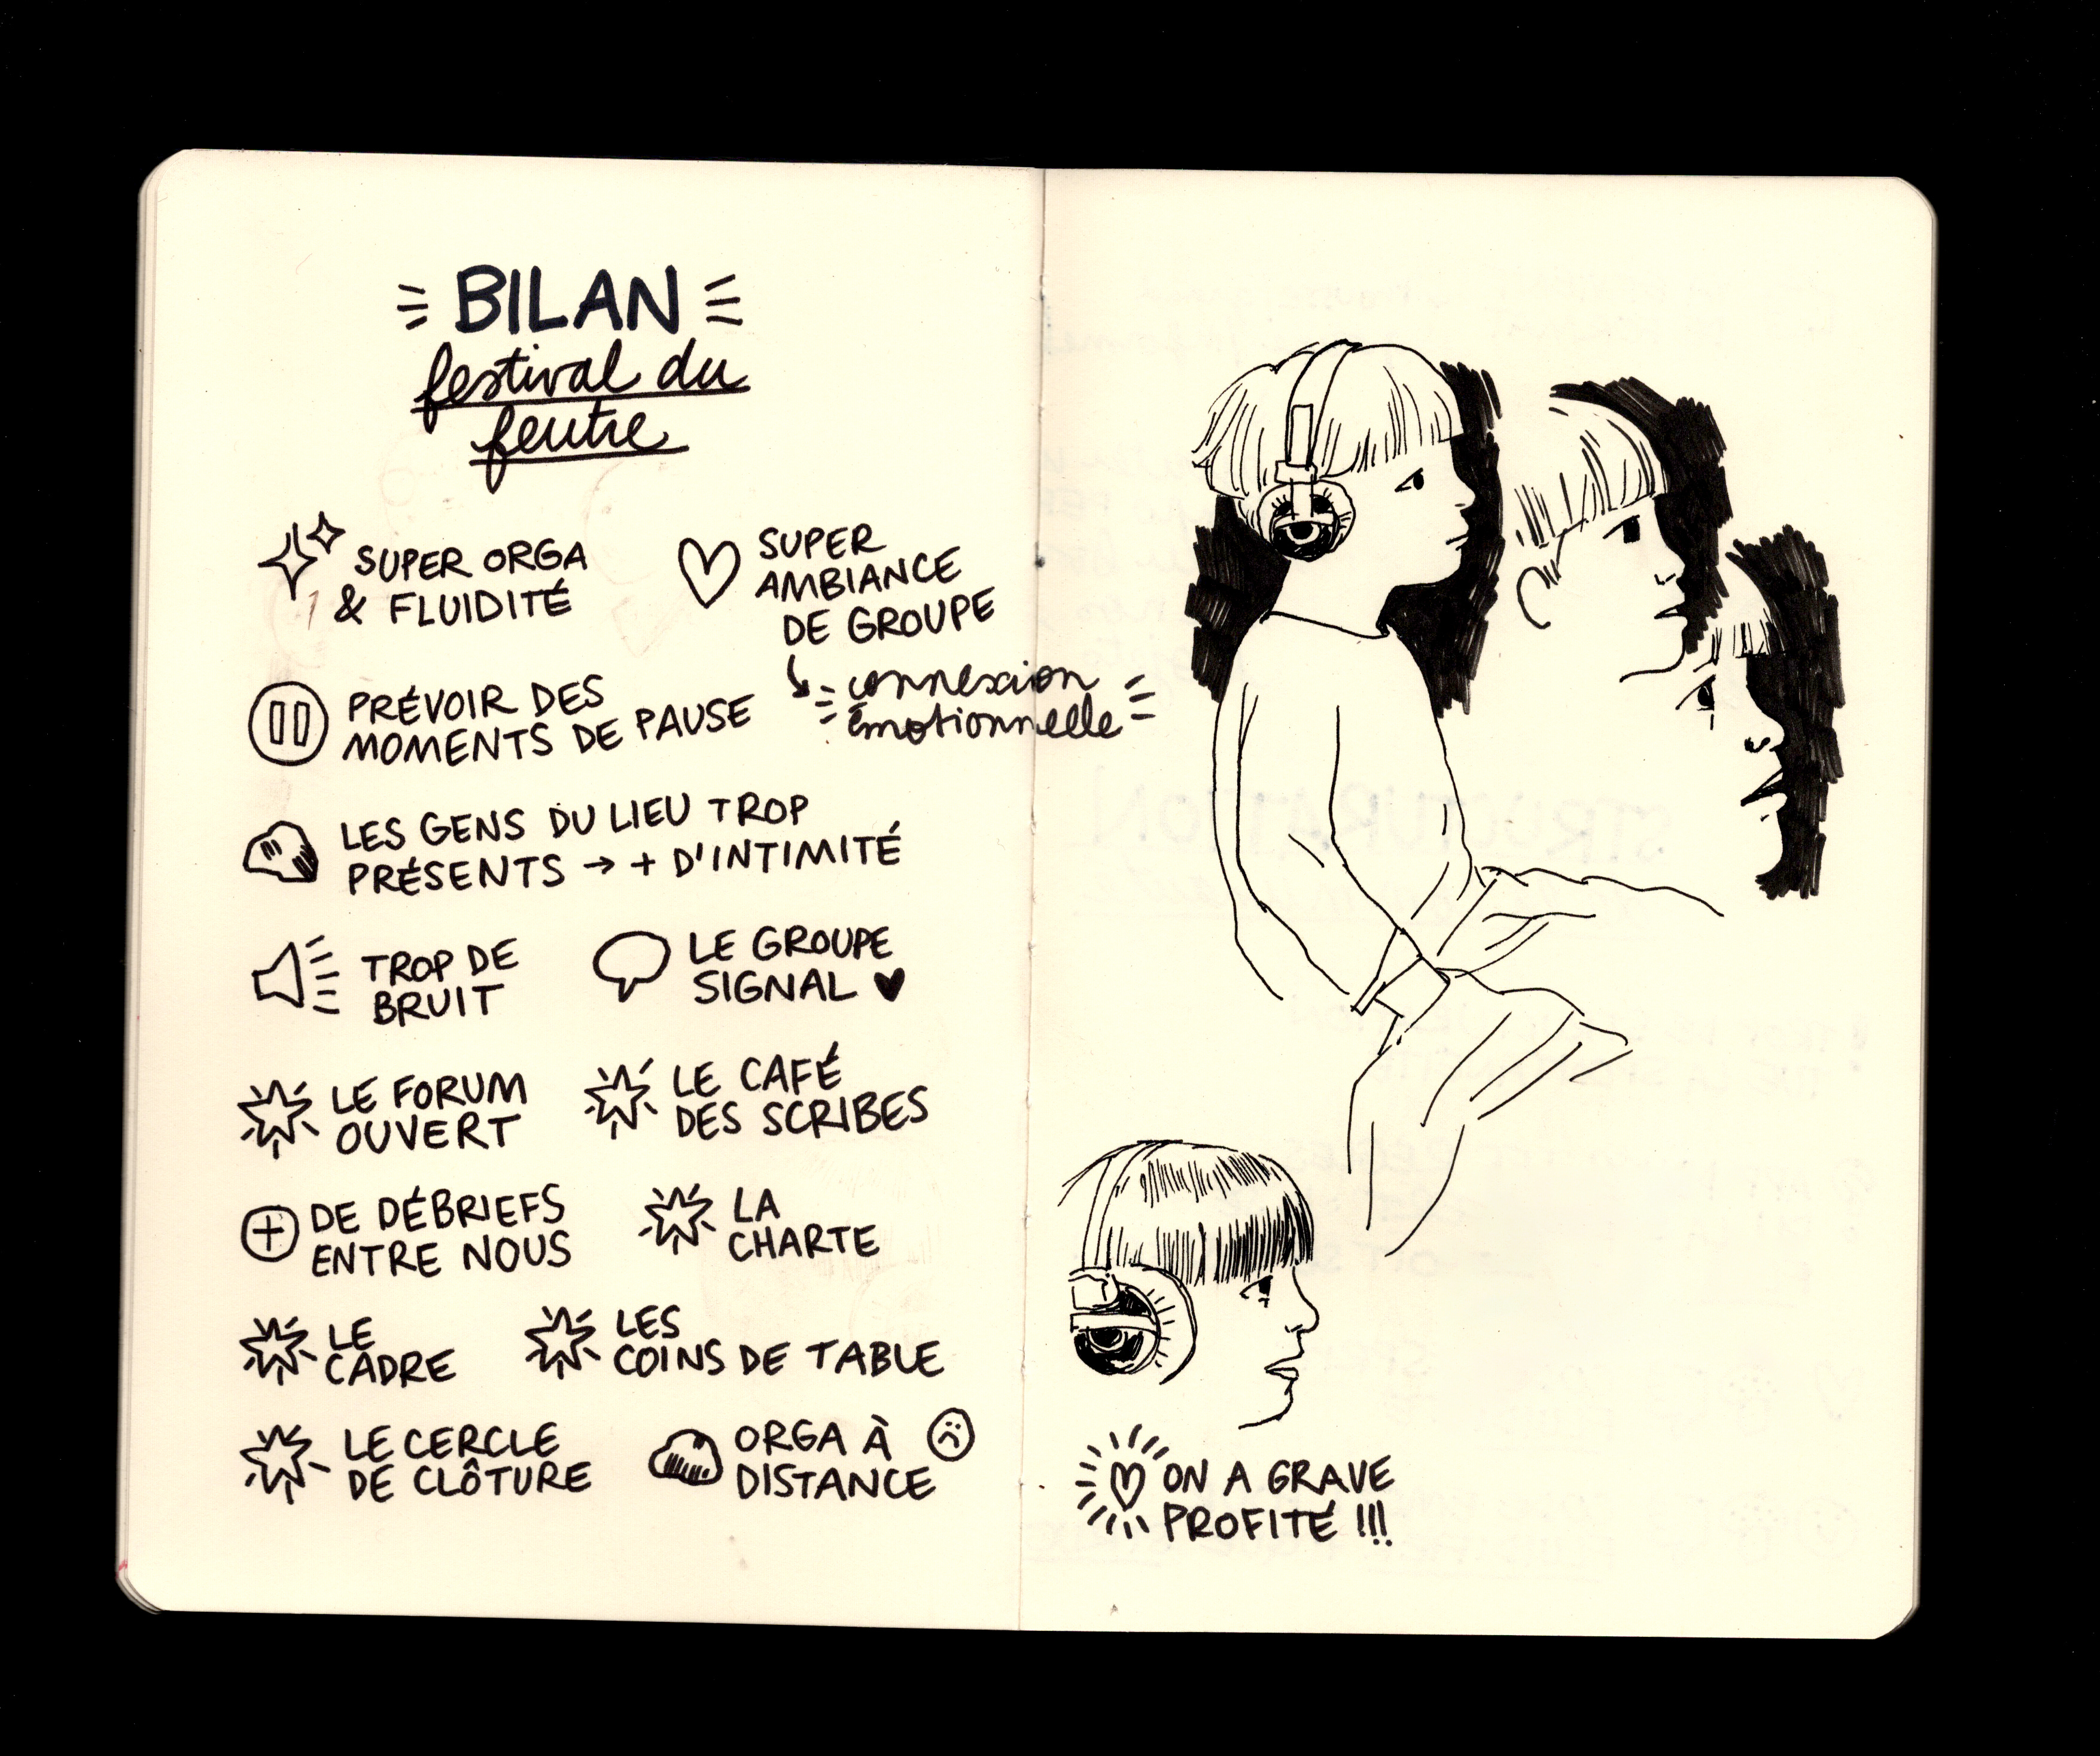 BILAN
festival du
feutre
SUPER ORGA
& FLUIDITÉ
SUPER
AMBIANCE
DE GROUPE
connexion
émotionnelle
PRÉVOIR DES
MOMENTS DE PAUSE
LES GENS DU LIEU TROP
PRÉSENTS → + D'INTIMITÉ
TROP DE
BRUIT
LE GROUPE
SIGNAL ♥
LE FORUM
OUVERT
LE CAFÉ
DES SCRIBES
+ DE DÉBRIEFS
ENTRE NOUS
LA
CHARTE
LE
CADRE
LES
COINS DE TABLE
LE CERCLE
DE CLÔTURE
ORGA À
DISTANCE
ON A GRAVE
PROFITÉ !!!